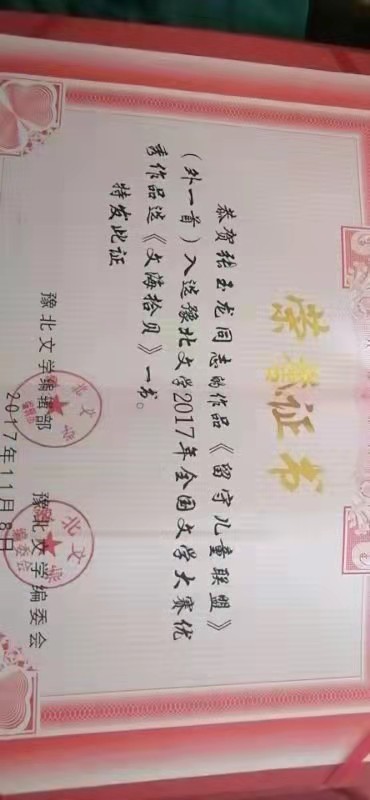 荣誉证书
恭贺张玉龙同志的作品《留守儿童联盟》
(外一首)入选豫北文学2017年全国文学大赛优
秀作品选《文海拾贝》一书。
特发此证
豫北文学编辑部 豫北文学编委会
2017年11月8日
豫北文学
编辑部
豫北文学
编委会